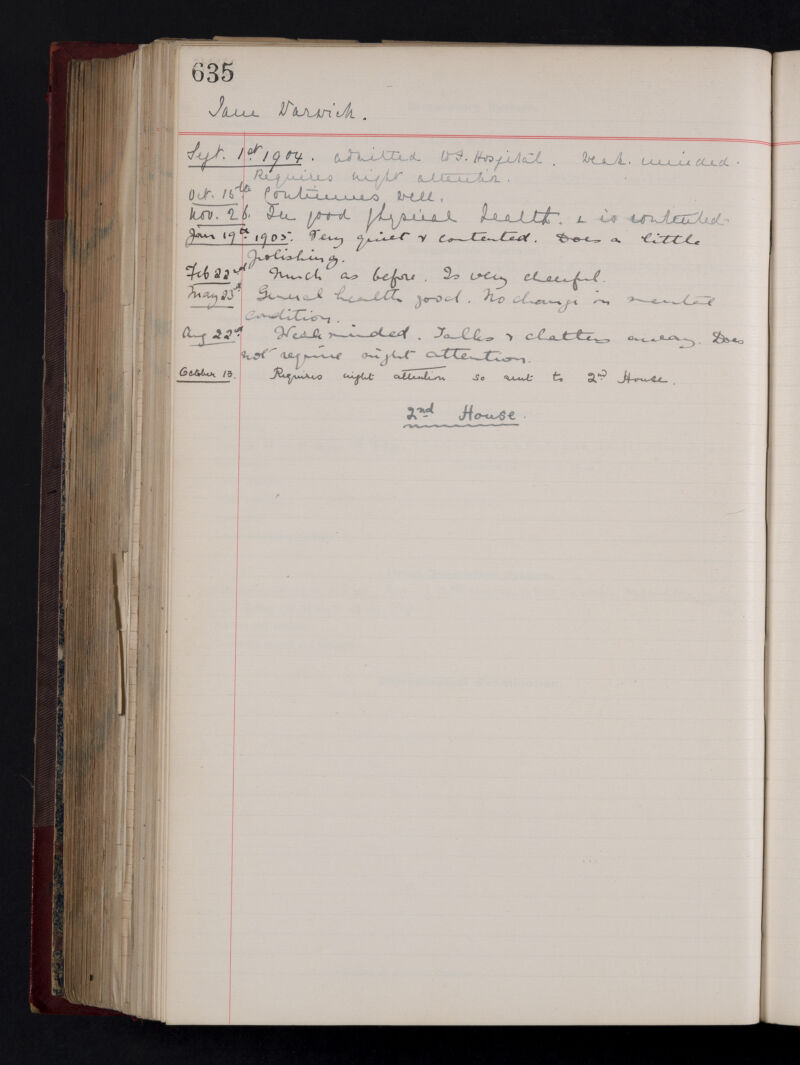 635
Jane Warwick.
Sept. 1st 1904. admitted W.F. Hospital. Weak minded.
Requires night attention.
Oct. 15th Continues well.
Nov. 26. In good physical health. & is contented.
Jan 19th 1905. Very quiet & contented. Does a little
polishing.
Feb 22nd Much as before. Is very cheerful.
May 23rd General health good. No change in mental
condition.
Aug 22nd Weakminded. Talks & chatters away. Does
not require night attention.
October 13. Requires night attention so sent to 2nd House.
2nd House.